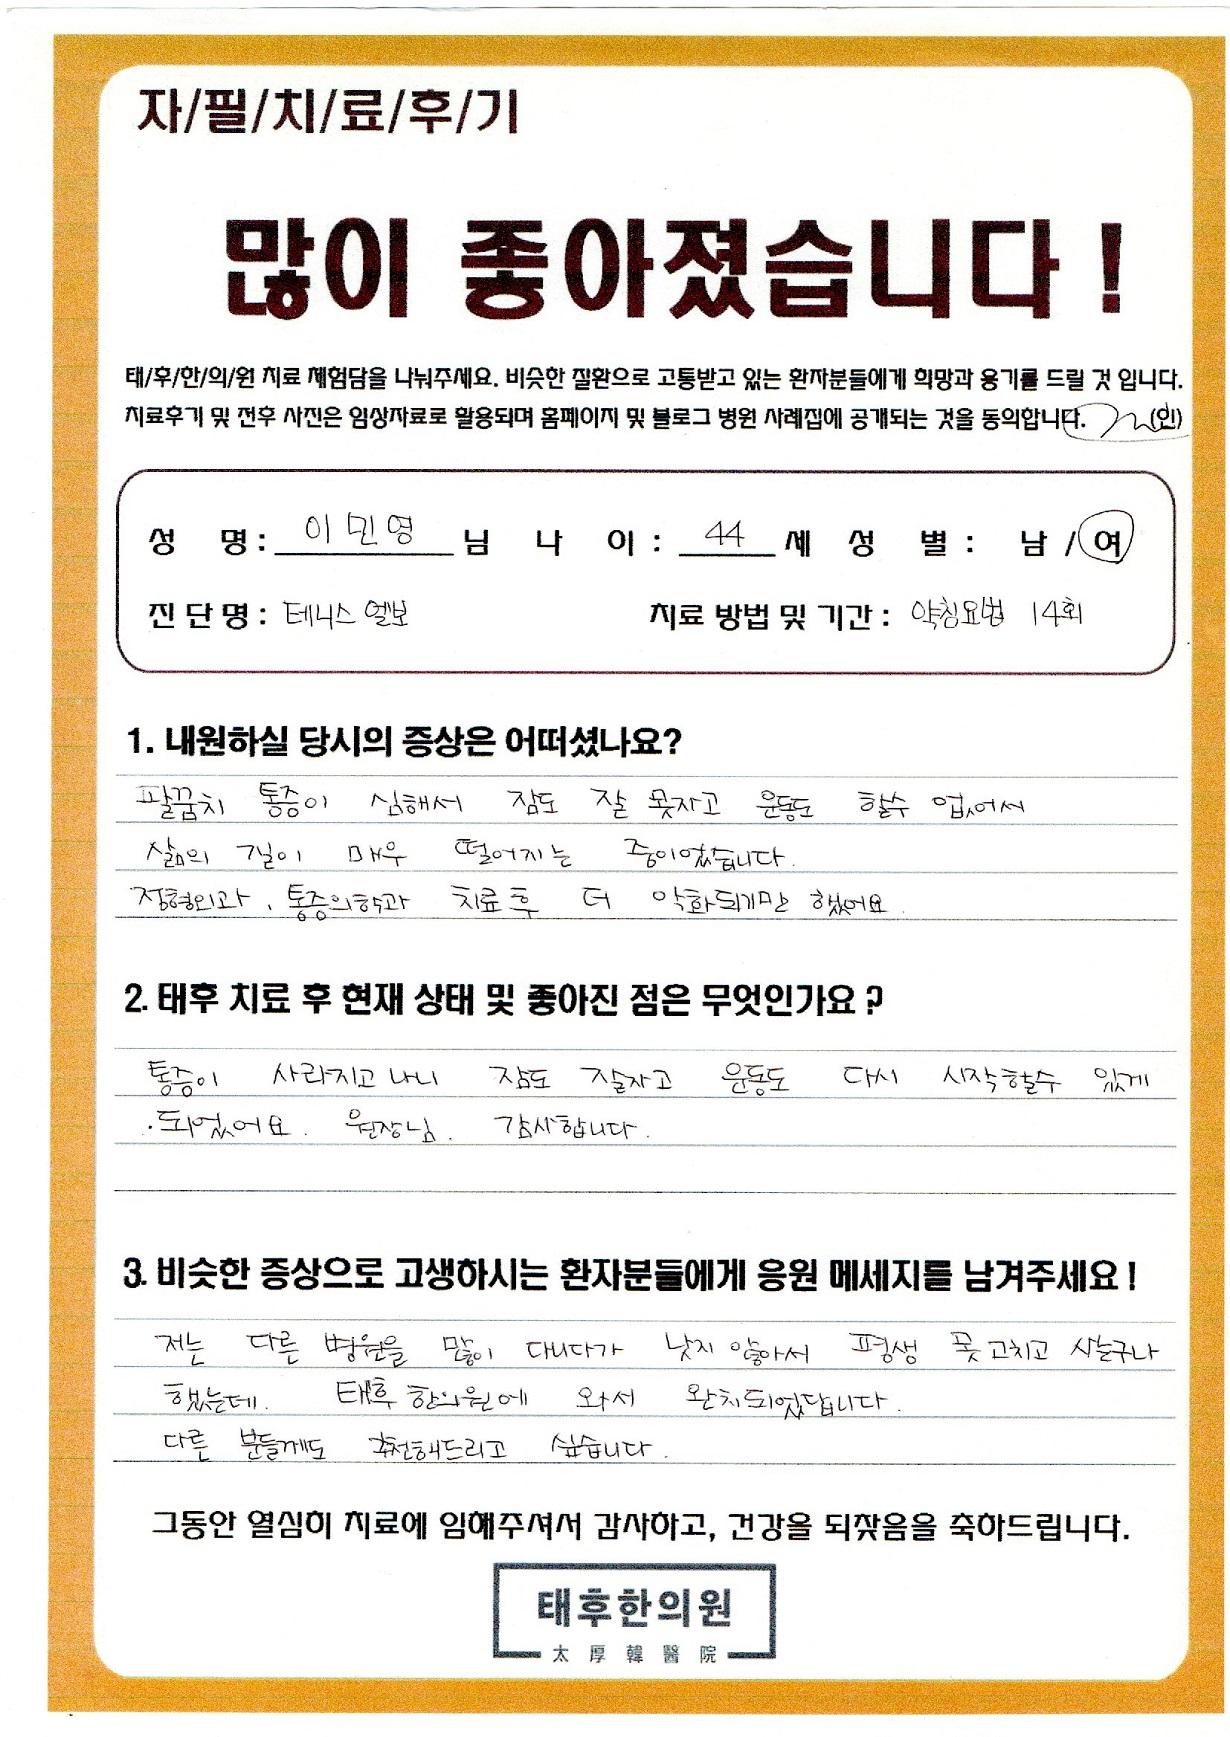 자/필/치/료/후/기
많이 좋아졌습니다!
태/후/한/의/원 치료 체험담을 나눠주세요. 비슷한 질환으로 고통받고 있는 환자분들에게 희망과 용기를 드릴 것 입니다.
치료후기 및 전후 사진은 임상자료로 활용되며 홈페이지 및 블로그 병원 사례집에 공개되는 것을 동의합니다. (인)
성 명: 이민영 님 나 이: 44 세 성 별: 남/여
진단명: 테니스엘보 치료 방법 및 기간: 약침요법 14회
1. 내원하실 당시의 증상은 어떠셨나요?
팔꿈치 통증이 심해서 잠도 잘 못자고 운동도 할수 없어서
삶의 질이 매우 떨어지는 중이었습니다.
정형외과, 통증의학과 치료후 더 악화되기만 했어요.
2. 태후 치료 후 현재 상태 및 좋아진 점은 무엇인가요?
통증이 사라지고 나니 잠도 잘자고 운동도 다시 시작할수 있게
되었어요. 원장님. 감사합니다.
3. 비슷한 증상으로 고생하시는 환자분들에게 응원 메세지를 남겨주세요!
저는 다른 병원을 많이 다니다가 낫지 않아서 평생 못고치고 사는구나
했는데. 태후 한의원에 와서 완치되었답니다.
다른 분들께도 추천해드리고 싶습니다.
그동안 열심히 치료에 임해주셔서 감사하고, 건강을 되찾음을 축하드립니다.
태후한의원
太厚韓醫院